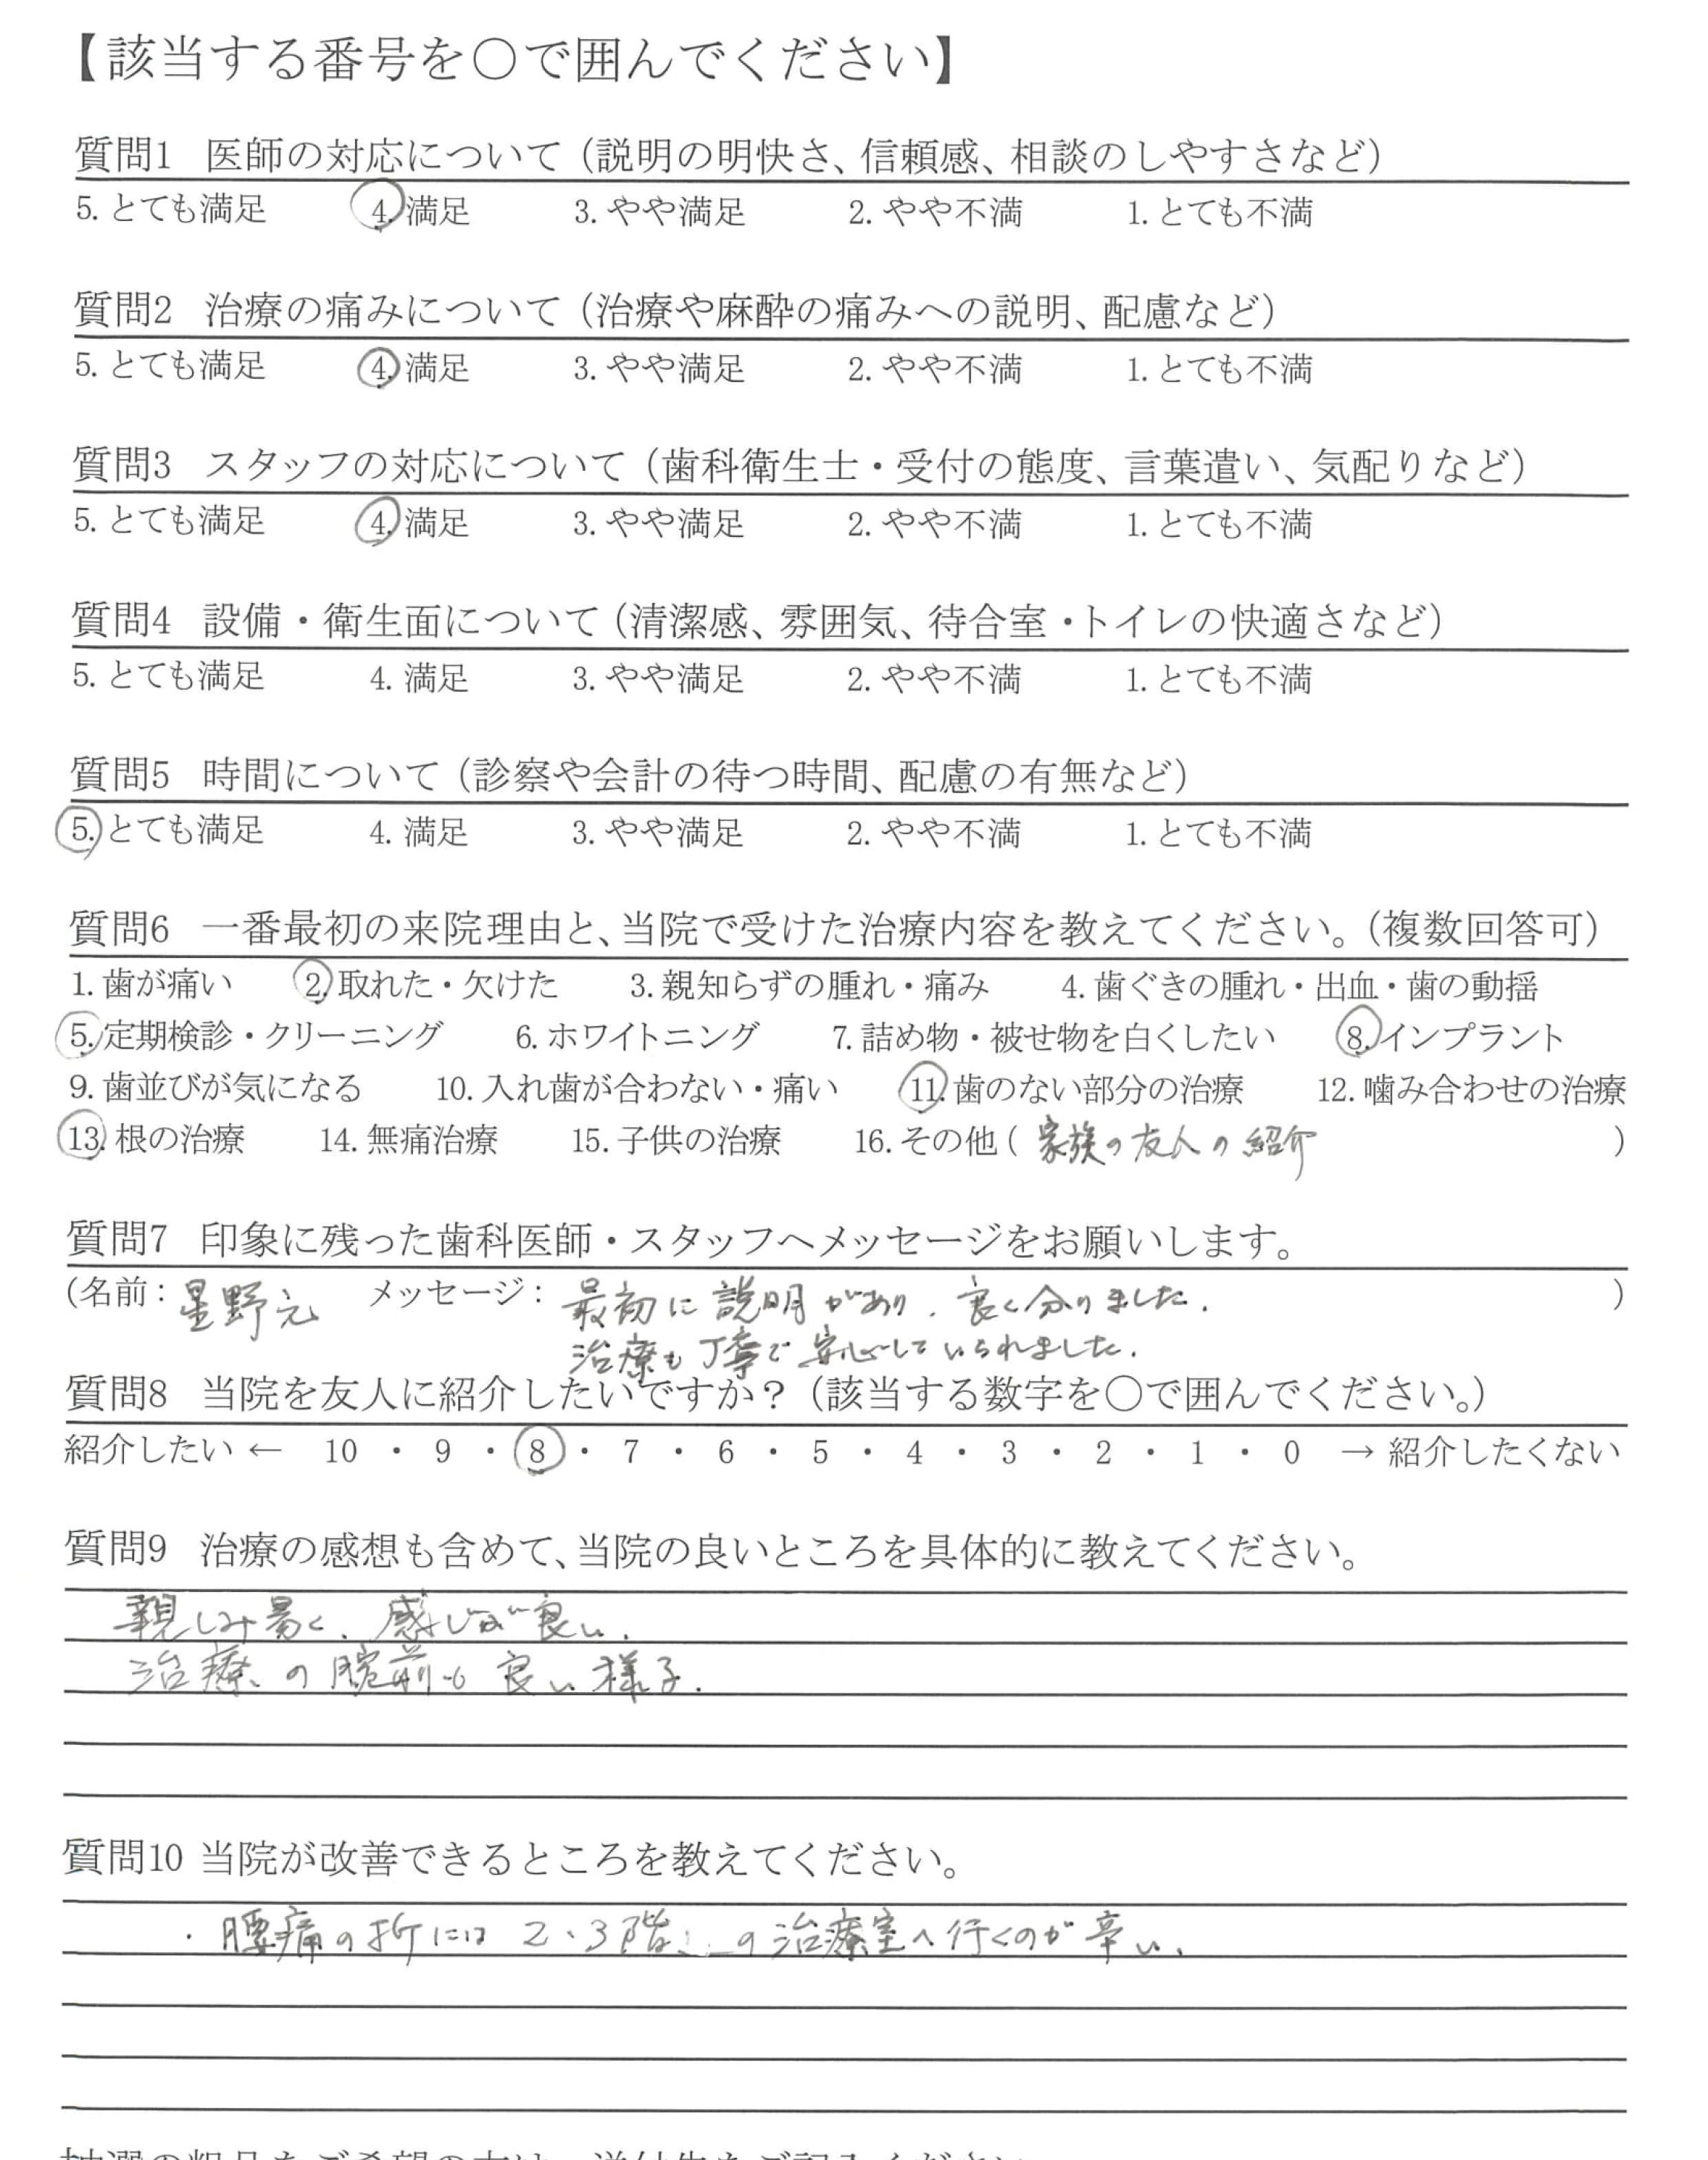 【該当する番号を〇で囲んでください】
質問1 医師の対応について（説明の明快さ、信頼感、相談のしやすさなど）
5. とても満足 4. 満足 3. やや満足 2. やや不満 1. とても不満
質問2 治療の痛みについて（治療や麻酔の痛みへの説明、配慮など）
5. とても満足 4. 満足 3. やや満足 2. やや不満 1. とても不満
質問3 スタッフの対応について（歯科衛生士・受付の態度、言葉遣い、気配りなど）
5. とても満足 4. 満足 3. やや満足 2. やや不満 1. とても不満
質問4 設備・衛生面について（清潔感、雰囲気、待合室・トイレの快適さなど）
5. とても満足 4. 満足 3. やや満足 2. やや不満 1. とても不満
質問5 時間について（診察や会計の待つ時間、配慮の有無など）
5. とても満足 4. 満足 3. やや満足 2. やや不満 1. とても不満
質問6 一番最初の来院理由と、当院で受けた治療内容を教えてください。（複数回答可）
1. 歯が痛い 2. 取れた・欠けた 3. 親知らずの腫れ・痛み 4. 歯ぐきの腫れ・出血・歯の動揺
5. 定期検診・クリーニング 6. ホワイトニング 7. 詰め物・被せ物を白くしたい 8. インプラント
9. 歯並びが気になる 10. 入れ歯が合わない・痛い 11. 歯のない部分の治療 12. 噛み合わせの治療
13. 根の治療 14. 無痛治療 15. 子供の治療 16. その他（家族の友人の紹介）
質問7 印象に残った歯科医師・スタッフへメッセージをお願いします。
（名前：星野元 メッセージ：最初に説明があり、良く分りました。）
治療も丁寧で安心していられました。
質問8 当院を友人に紹介したいですか？（該当する数字を〇で囲んでください。）
紹介したい ← 10 ・ 9 ・ 8 ・ 7 ・ 6 ・ 5 ・ 4 ・ 3 ・ 2 ・ 1 ・ 0 → 紹介したくない
質問9 治療の感想も含めて、当院の良いところを具体的に教えてください。
親しみ易く、感じが良い。
治療の腕前も良い様子。
質問10 当院が改善できるところを教えてください。
・腰痛の折には2、3階の治療室へ行くのが辛い。
抽選の粗品をご希望の方は、送付先をご記入ください